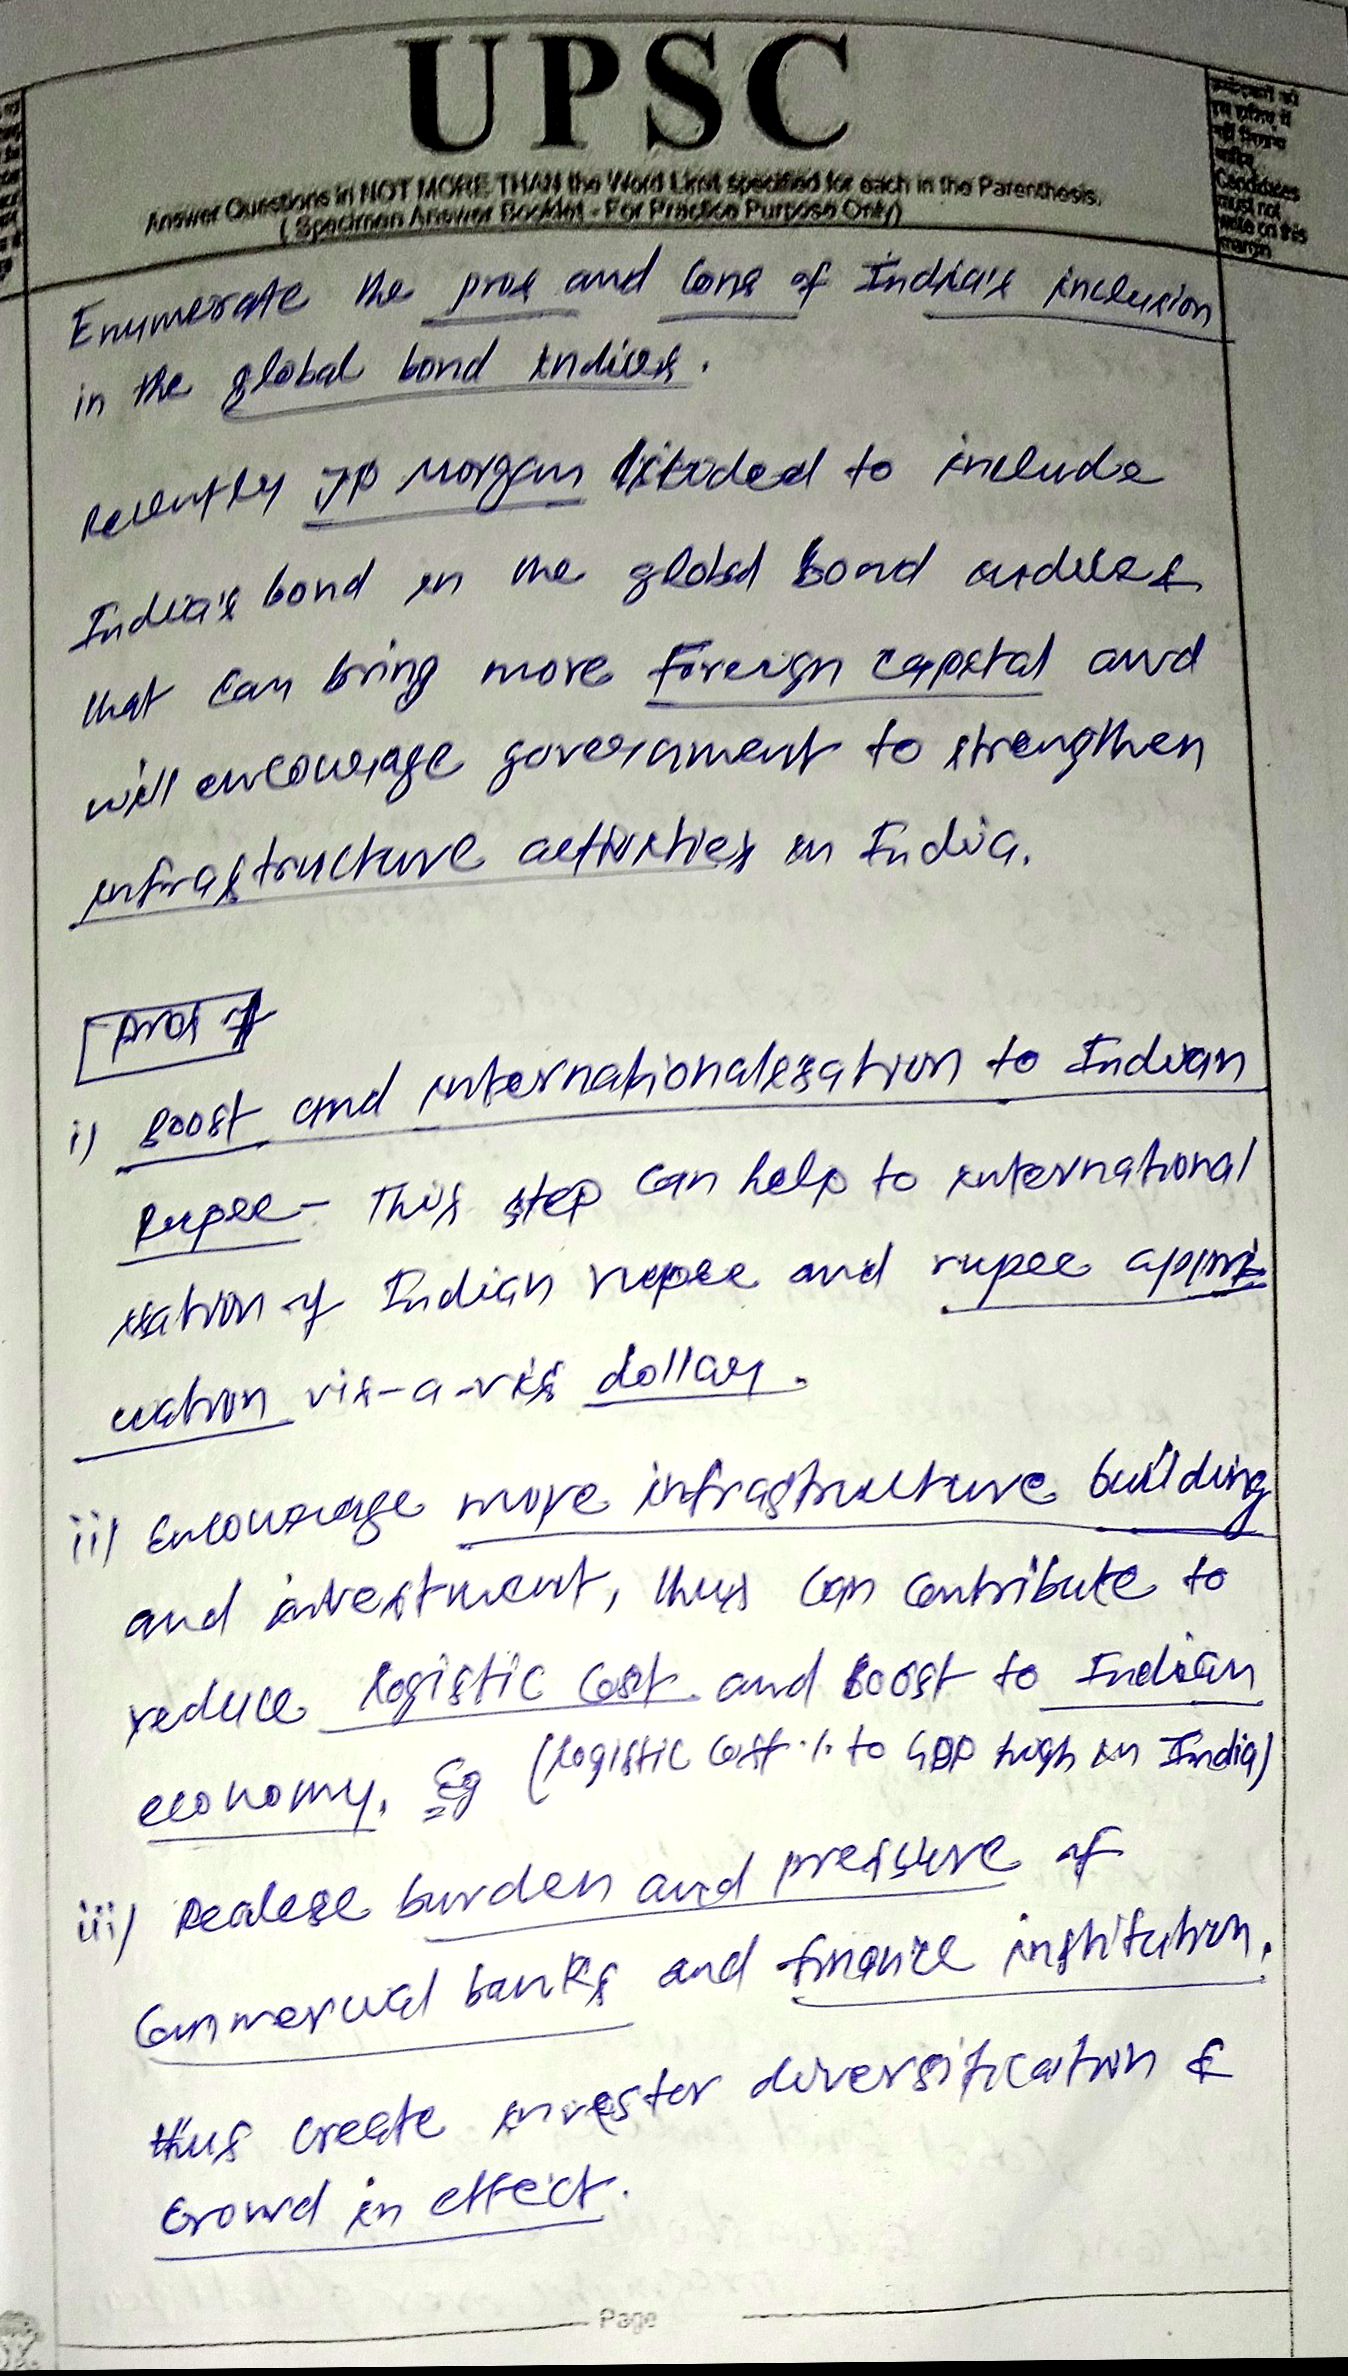 UPSC
Answer Questions in NOT MORE THAN the Word Limit specified for each in the Parenthesis.
( Specimen Answer Booklet - For Practice Purpose Only)
Candidates
must not
write on this
margin
Enumerate the pros and cons of India's inclusion
in the global bond indices.
Recently JP Morgan decided to include
India's bond in the global bond indices
that can bring more Foreign capital and
will encourage government to strengthen
infrastructure activities in India.
Pros
i) Boost and internationalisation to Indian
Rupee - This step can help to international
isation of Indian rupee and rupee appre
ciation vis-a-vis dollar.
ii) Encourage more infrastructure building
and investment, thus can contribute to
reduce logistic cost and boost to Indian
economy. Eg (logistic cost % to GDP high in India)
iii) Realese burden and pressure of
Commercial banks and finance institution.
thus create investor diversification &
Crowd in effect.
Page